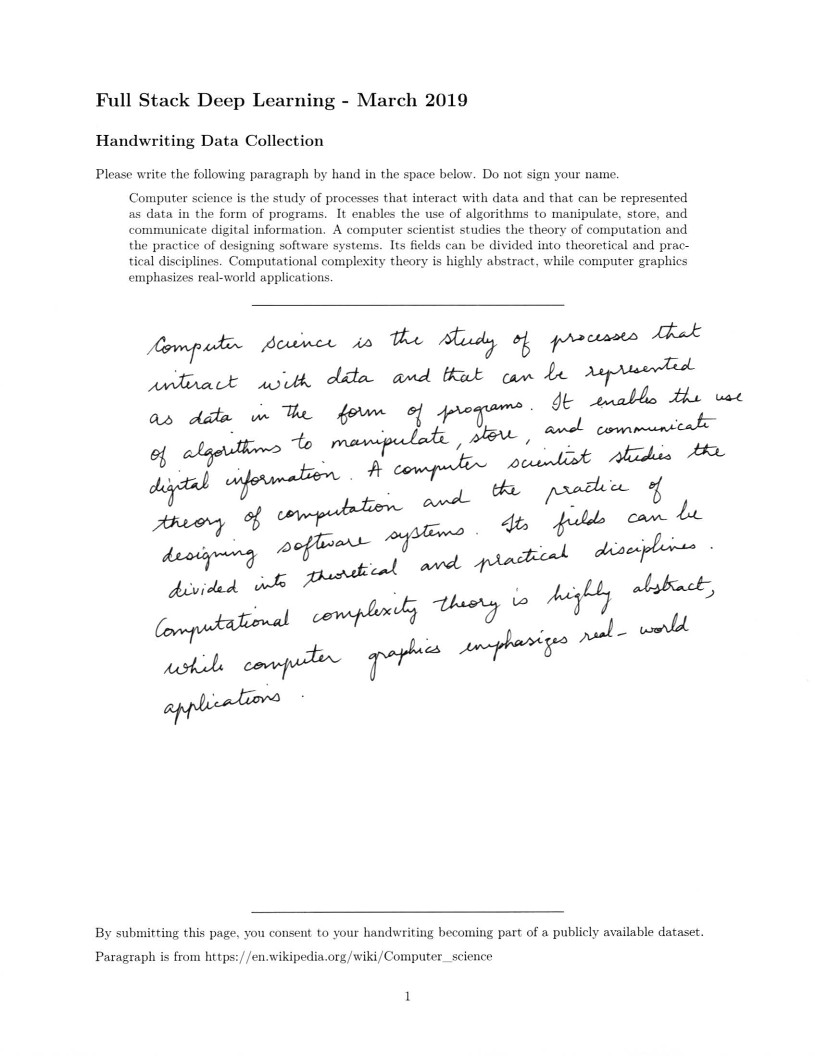 Full Stack Deep Learning - March 2019
Handwriting Data Collection
Please write the following paragraph by hand in the space below. Do not sign your name.
Computer science is the study of processes that interact with data and that can be represented
as data in the form of programs. It enables the use of algorithms to manipulate, store, and
communicate digital information. A computer scientist studies the theory of computation and
the practice of designing software systems. Its fields can be divided into theoretical and prac-
tical disciplines. Computational complexity theory is highly abstract, while computer graphics
emphasizes real-world applications.
Computer science is the study of processes that
interact with data and that can be represented
as data in the form of programs. It enables the use
of algorithms to manipulate, store, and communicate
digital information. A computer scientist studies the
theory of computation and the practice of
designing software systems. Its fields can be
divided into theoretical and practical disciplines.
Computational complexity theory is highly abstract,
while computer graphics emphasizes real-world
applications.
By submitting this page, you consent to your handwriting becoming part of a publicly available dataset.
Paragraph is from https://en.wikipedia.org/wiki/Computer_science
1